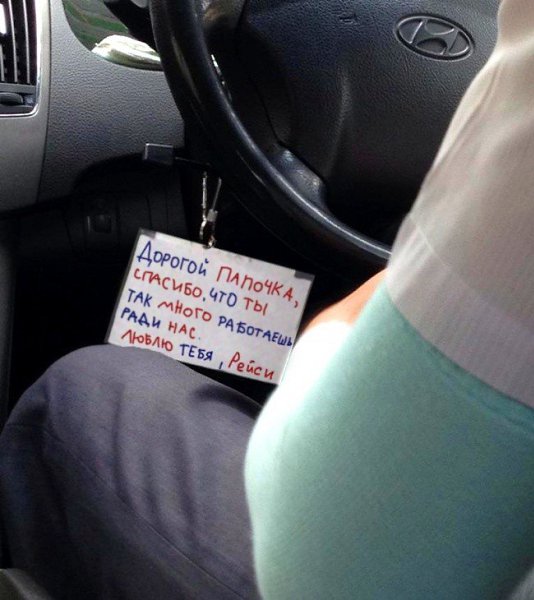 Дорогой ПАПОЧКА,
СПАСИБО, ЧТО ТЫ
ТАК МНОГО РАБОТАЕШЬ
РАДИ НАС.
ЛЮБЛЮ ТЕБЯ, Рейси